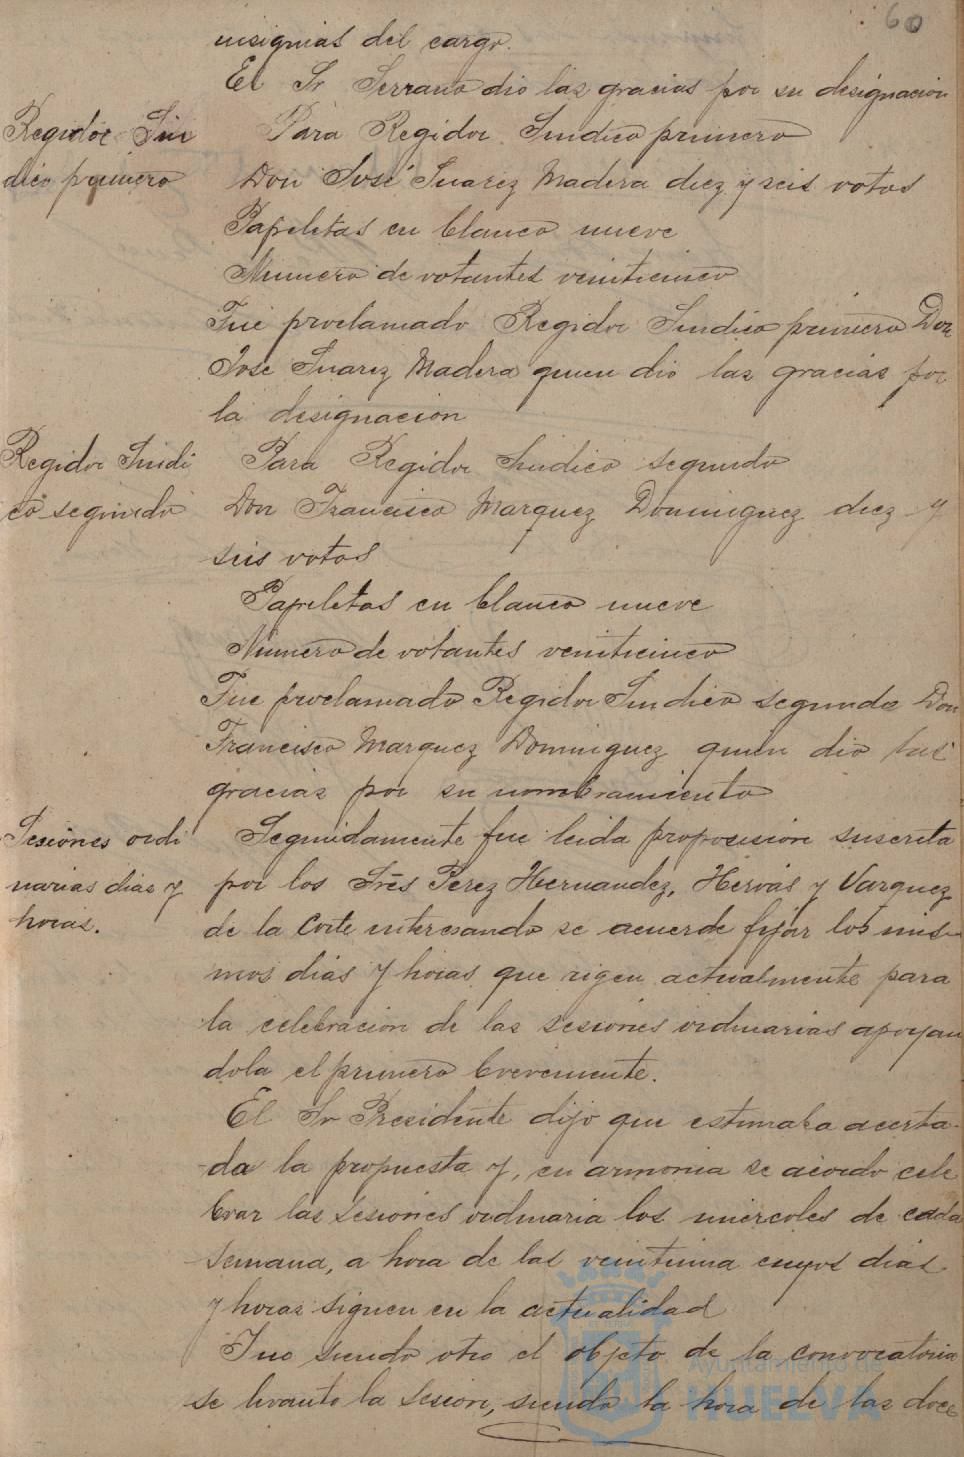 60
insignias del cargo.
El Sr Serrano dio las gracias por su designacion
Regidor Sin
dico primero
Para Regidor Sindico primero
Don José Suarez Madera diez y seis votos
Papeletas en blanco nueve
Numero de votantes veinticinco
Fue proclamado Regidor Sindico primero Don
Jose Suarez Madera quien dio las gracias por
la designacion
Regidor Sindi
co segundo
Para Regidor Sindico segundo
Don Francisco Marquez Dominguez diez y
seis votos
Papeletas en blanco nueve
Numero de votantes veinticinco
Fue proclamado Regidor Sindico segundo Don
Francisco Marquez Dominguez quien dio las
gracias por su nombramiento
Sesiones ordi
narias dias y
horas.
Seguidamente fue leida proposicion suscrita
por los Sres Perez Hernandez, Hervás y Vazquez
de la Corte interesando se acuerde fijar los mis-
mos dias y horas que rigen actualmente para
la celebracion de las sesiones ordinarias apoyan
dola el primero brevemente.
El Sr Presidente dijo que estimaba acerta-
da la propuesta y, en armonia se acordo cele
brar las sesiones ordinaria los miercoles de cada
semana, a hora de las veintiuna cuyos dias
y horas siguen en la actualidad
Y no siendo otro el objeto de la convocatoria
se levanto la sesion, siendo la hora de las doce
Ayuntamiento de
HUELVA